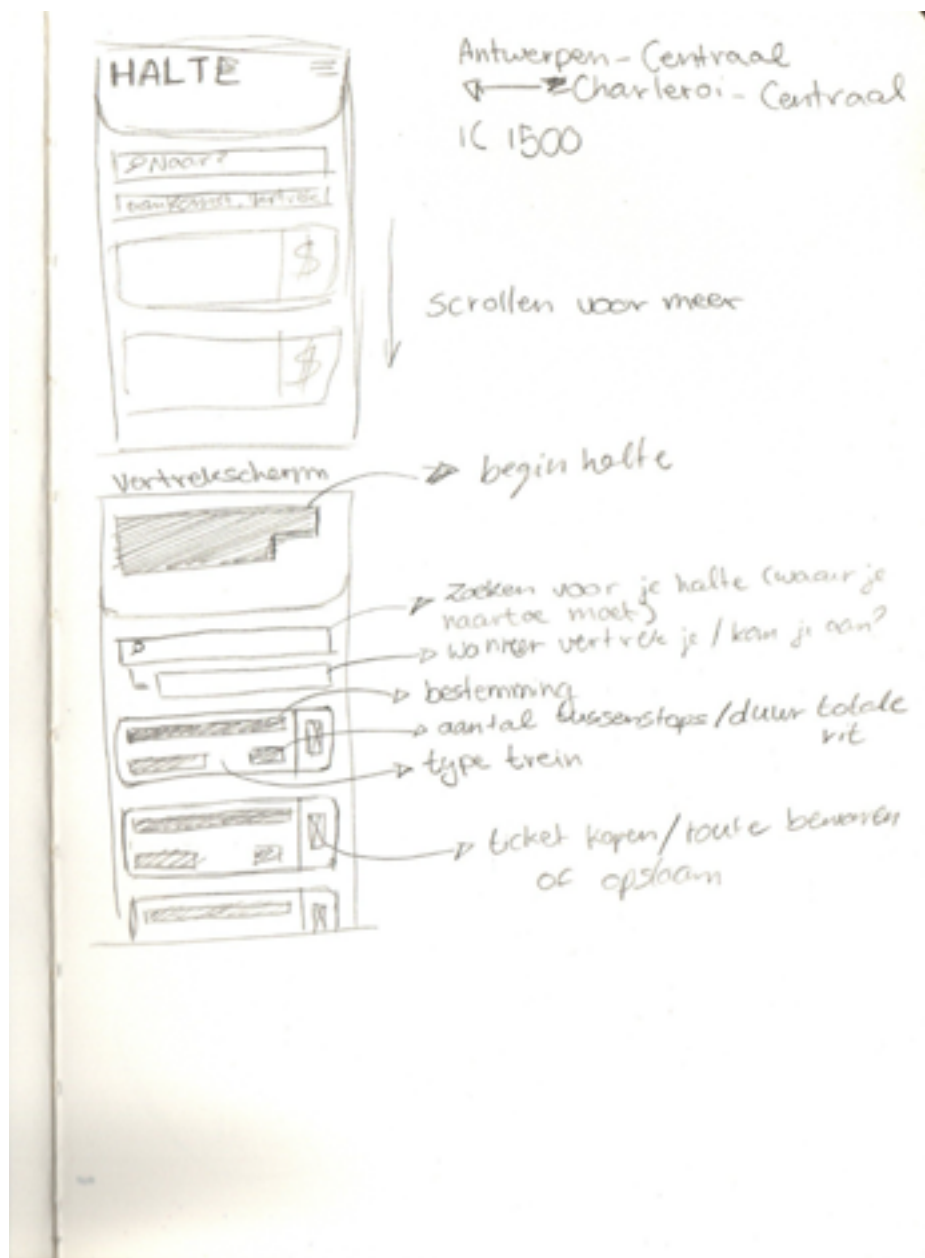 HALTE
Naar?
aankomst, vertrek
$
$
Antwerpen - Centraal
Charleroi - Centraal
IC 1500
scrollen voor meer
Vertrekscherm
begin halte
Zoeken voor je halte (waar je
naartoe moet)
wanneer vertrek je / kom je aan?
bestemming
aantal tussenstops/duur totale
rit
type trein
ticket kopen/route bewaren
of opslaam